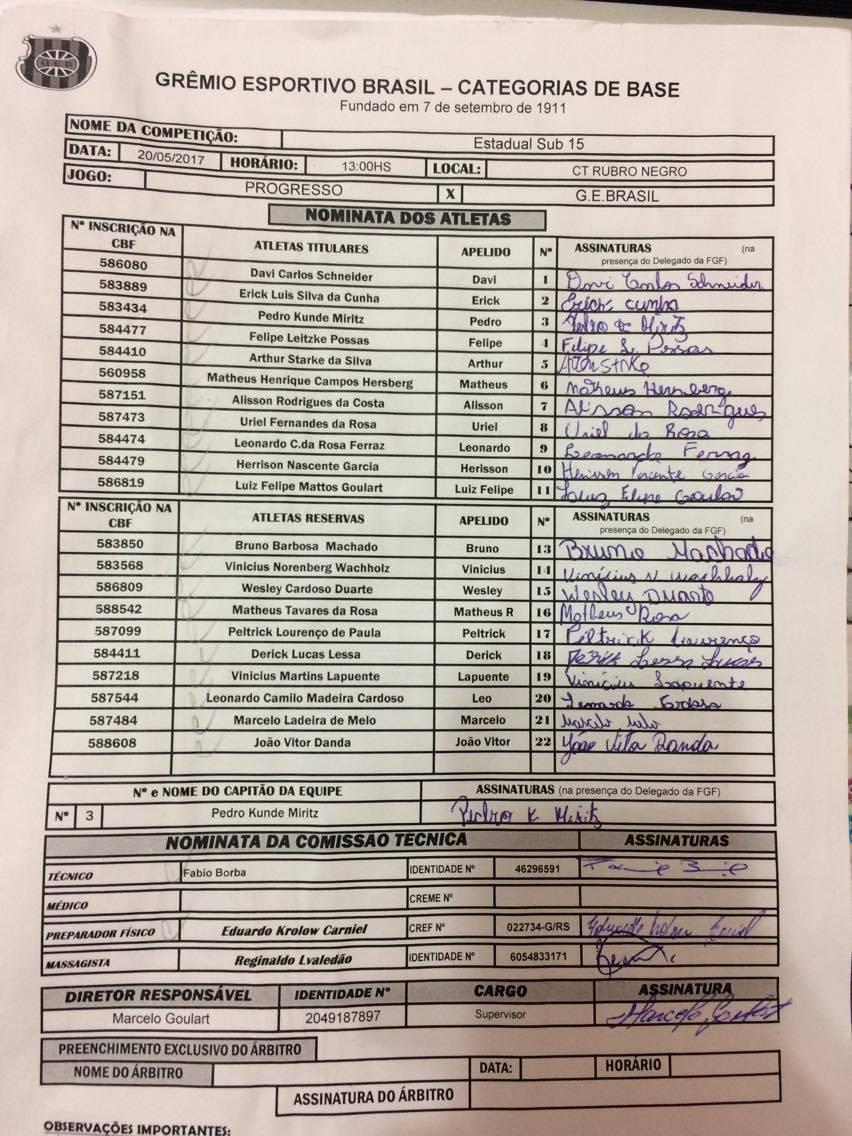 GRÊMIO ESPORTIVO BRASIL – CATEGORIAS DE BASE
Fundado em 7 de setembro de 1911
NOME DA COMPETIÇÃO: Estadual Sub 15
DATA: 20/05/2017 HORÁRIO: 13:00HS LOCAL: CT RUBRO NEGRO
JOGO: PROGRESSO X G.E.BRASIL
NOMINATA DOS ATLETAS
Nº INSCRIÇÃO NA CBF ATLETAS TITULARES APELIDO Nº ASSINATURAS (na presença do Delegado da FGF)
586080 Davi Carlos Schneider Davi 1 Davi Carlos Schneider
583889 Erick Luis Silva da Cunha Erick 2 Erick Cunha
583434 Pedro Kunde Miritz Pedro 3 Pedro K Miritz
584477 Felipe Leitzke Possas Felipe 4 Felipe L Possas
584410 Arthur Starke da Silva Arthur 5
560958 Matheus Henrique Campos Hersberg Matheus 6 Matheus Hersberg
587151 Alisson Rodrigues da Costa Alisson 7 Alisson Rodrigues
587473 Uriel Fernandes da Rosa Uriel 8 Uriel da Rosa
584474 Leonardo C.da Rosa Ferraz Leonardo 9 Leonardo Ferraz
584479 Herrison Nascente Garcia Herisson 10 Herisson Nascente Garcia
586819 Luiz Felipe Mattos Goulart Luiz Felipe 11 Luiz Felipe Goulart
Nº INSCRIÇÃO NA CBF ATLETAS RESERVAS APELIDO Nº ASSINATURAS (na presença do Delegado da FGF)
583850 Bruno Barbosa Machado Bruno 13 Bruno Machado
583568 Vinicius Norenberg Wachholz Vinicius 14 Vinicius N Wachholz
586809 Wesley Cardoso Duarte Wesley 15 Wesley Duarte
588542 Matheus Tavares da Rosa Matheus R 16 Matheus Rosa
587099 Peltrick Lourenço de Paula Peltrick 17 Peltrick Lourenço
584411 Derick Lucas Lessa Derick 18 Derick Lessa Lucas
587218 Vinicius Martins Lapuente Lapuente 19 Vinicius Lapuente
587544 Leonardo Camilo Madeira Cardoso Leo 20 Leonardo Cardoso
587484 Marcelo Ladeira de Melo Marcelo 21 Marcelo Melo
588608 João Vitor Danda João Vitor 22 João Vitor Danda
Nº e NOME DO CAPITÃO DA EQUIPE ASSINATURAS (na presença do Delegado da FGF)
Nº 3 Pedro Kunde Miritz Pedro K Miritz
NOMINATA DA COMISSAO TÉCNICA ASSINATURAS
TÉCNICO Fabio Borba IDENTIDADE Nº 46296591
MÉDICO CREME Nº
PREPARADOR FÍSICO Eduardo Krolow Carniel CREF Nº 022734-G/RS Eduardo Krolow Carniel
MASSAGISTA Reginaldo Lvaledão IDENTIDADE Nº 6054833171
DIRETOR RESPONSÁVEL IDENTIDADE Nº CARGO ASSINATURA
Marcelo Goulart 2049187897 Supervisor Marcelo Goulart
PREENCHIMENTO EXCLUSIVO DO ÁRBITRO
NOME DO ÁRBITRO DATA: HORÁRIO
ASSINATURA DO ÁRBITRO
OBSERVAÇÕES IMPORTANTES: